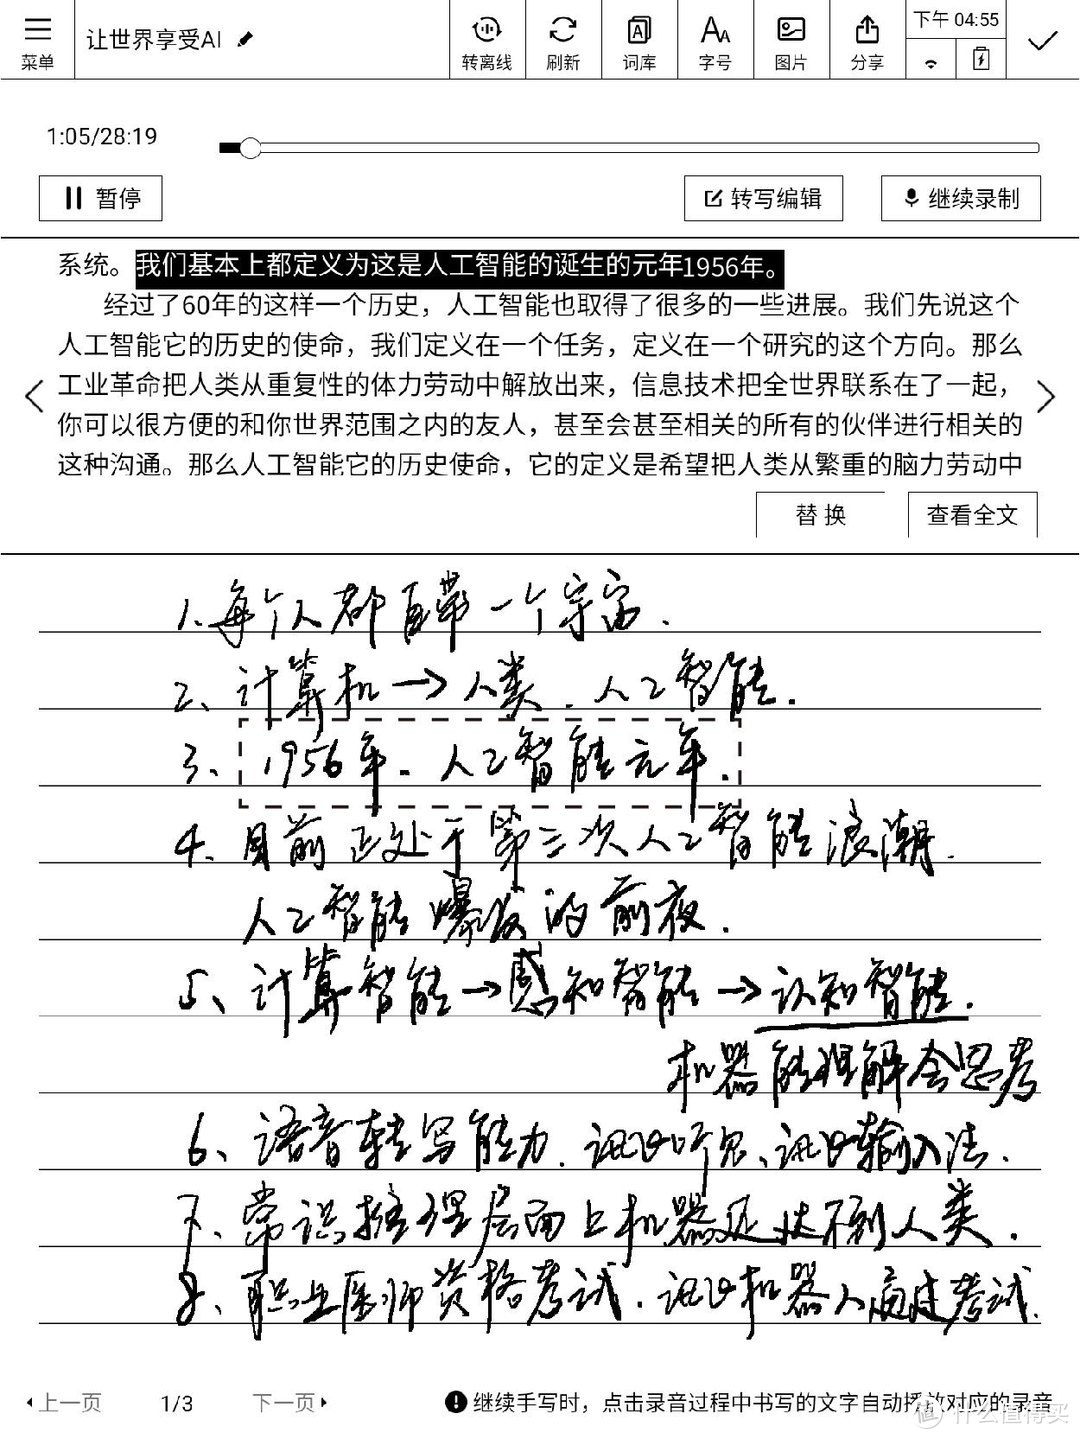 菜单
让世界享受AI
转离线
刷新
词库
字号
图片
分享
下午 04:55
1:05/28:19
暂停
转写编辑
继续录制
系统。我们基本上都定义为这是人工智能的诞生的元年1956年。
经过了60年的这样一个历史，人工智能也取得了很多的一些进展。我们先说这个
人工智能它的历史的使命，我们定义在一个任务，定义在一个研究的这个方向。那么
工业革命把人类从重复性的体力劳动中解放出来，信息技术把全世界联系在了一起，
你可以很方便的和你世界范围之内的友人，甚至会甚至相关的所有的伙伴进行相关的
这种沟通。那么人工智能它的历史使命，它的定义是希望把人类从繁重的脑力劳动中
替换
查看全文
1.每个人都自带一个宇宙.
2、计算机→人类.人工智能.
3、1956年.人工智能元年.
4、目前正处于第三次人工智能浪潮.
人工智能爆发的前夜.
5、计算智能→感知智能→认知智能.
机器能理解会思考
6、语音转写能力.讯飞听见、讯飞输入法.
7、常识推理层面上机器还达不到人类.
8、职业医师资格考试.讯飞机器人通过考试.
上一页
1/3
下一页
继续手写时，点击录音过程中书写的文字自动播放对应的录音
值 什么值得买